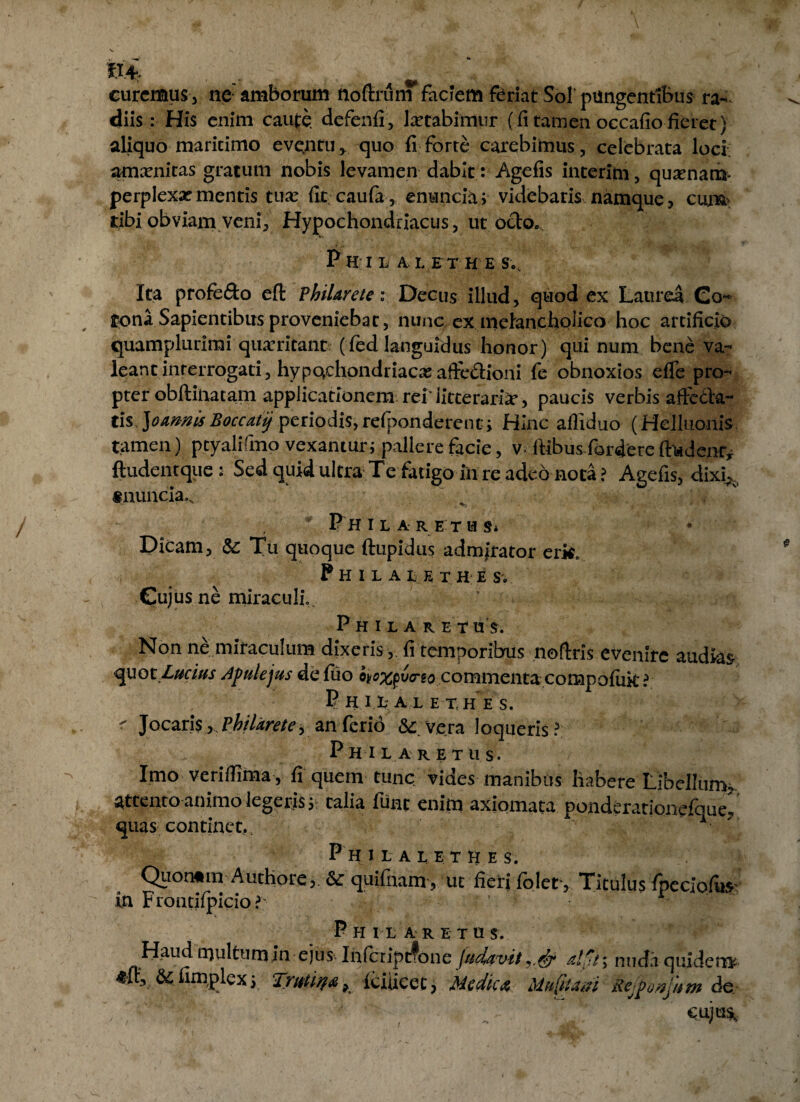 114.
curemus, ne amborum noſtrûm faciem feriat Sol pungentibus ra-
diis: His enim cautè defenſi, lætabimur (ſi tamen occaſio fieret)
aliquo maritimo eventu, quo ſi fortè carebimus, celebrata loci
amænitas gratum nobis levamen dabit: Ageſis interim, quænam
perplexæ mentis tuæ ſit cauſa, enuncia; videbatis namque, cum
tibi obviam veni, Hypochondriacus, ut octo.
PHILALETHES.
Ita profecto eſt Philarete: Decus illud, quod ex Laureâ Co-
ronâ Sapientibus proveniebat, nunc ex melancholico hoc artificio
quamplurimi quæritant (ſed languidus honor) qui num bene va-
leant interrogati, hypochondriacæ affectioni ſe obnoxios eſſe pro-
pter obſtinatam applicationem rei litterariæ, paucis verbis affecta-
tis Joannis Boccatij periodis, reſponderent; Hinc aſſiduo (Helluonis
tamen) ptyaliſmo vexantur; pallere facie, v. ſtibus ſordere ſtudent,
ſtudentque: Sed quid ultra Te fatigo in re adeò notâ? Ageſis, dixi,
enuncia.
PHILARETUS.
Dicam, & Tu quoque ſtupidus admirator eris.
PHILALETHES.
Cujus nè miraculi.
PHILARETUS.
Non nè miraculum dixeris, ſi temporibus noſtris evenire audias
quot Lucius Apulejus de ſuo commenta compoſuit?
PHILALETHES.
Jocaris, Philarete, an ſeriò & vera loqueris?
PHILARETUS.
Imo veriſſima, ſi quem tunc vides manibus habere Libellum,
attento animo legeris; talia ſunt enim axiomata ponderationeſque,
quas continet.
PHILALETHES.
Quonam Authore, & quiſnam, ut fieri ſolet, Titulus ſpecioſus
in Frontiſpicio?
PHILARETUS.
Haud multum in ejus Inſcriptione ſudavit, & alſit; nuda quidem
eſt, & ſimplex; Trutina, ſcilicet, Medica Muſitani Reſponſum de
cujus